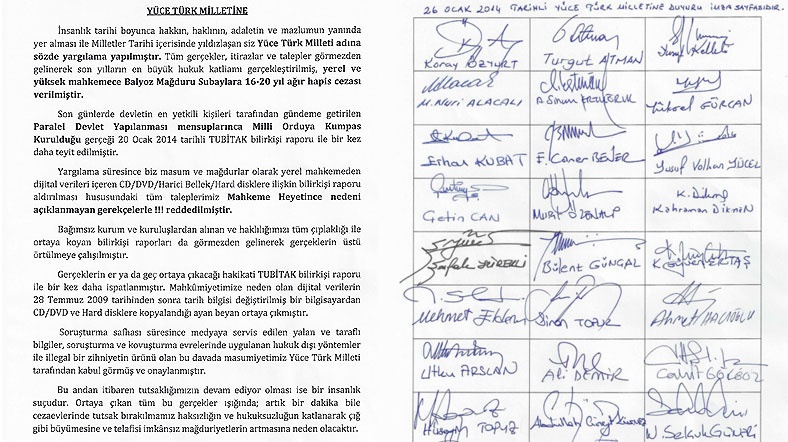 YÜCE TÜRK MİLLETİNE
İnsanlık tarihi boyunca hakkın, haklının, adaletin ve mazlumun yanında
yer alması ile Milletler Tarihi içerisinde yıldızlaşan siz Yüce Türk Milleti adına
sözde yargılama yapılmıştır. Tüm gerçekler, itirazlar ve talepler görmezden
gelinerek son yılların en büyük hukuk katliamı gerçekleştirilmiş, yerel ve
yüksek mahkemece Balyoz Mağduru Subaylara 16-20 yıl ağır hapis cezası
verilmiştir.
Son günlerde devletin en yetkili kişileri tarafından gündeme getirilen
Paralel Devlet Yapılanması mensuplarınca Milli Orduya Kumpas
Kurulduğu gerçeği 20 Ocak 2014 tarihli TUBİTAK bilirkişi raporu ile bir kez
daha teyit edilmiştir.
Yargılama süresince biz masum ve mağdurlar olarak yerel mahkemeden
dijital verileri içeren CD/DVD/Harici Bellek/Hard disklere ilişkin bilirkişi raporu
aldırılması hususundaki tüm taleplerimiz Mahkeme Heyetince nedeni
açıklanmayan gerekçelerle !!! reddedilmiştir.
Bağımsız kurum ve kuruluşlardan alınan ve haklılığımızı tüm çıplaklığı ile
ortaya koyan bilirkişi raporları da görmezden gelinerek gerçeklerin üstü
örtülmeye çalışılmıştır.
Gerçeklerin er ya da geç ortaya çıkacağı hakikati TUBİTAK bilirkişi raporu
ile bir kez daha ispatlanmıştır. Mahkûmiyetimize neden olan dijital verilerin
28 Temmuz 2009 tarihinden sonra tarih bilgisi değiştirilmiş bir bilgisayardan
CD/DVD ve Hard disklere kopyalandığı ayan beyan ortaya çıkmıştır.
Soruşturma safhası süresince medyaya servis edilen yalan ve taraflı
bilgiler, soruşturma ve kovuşturma evrelerinde uygulanan hukuk dışı yöntemler
ile illegal bir zihniyetin ürünü olan bu davada masumiyetimiz Yüce Türk Milleti
tarafından kabul görmüş ve onaylanmıştır.
Bu andan itibaren tutsaklığımızın devam ediyor olması ise bir insanlık
suçudur. Ortaya çıkan tüm bu gerçekler ışığında; artık bir dakika bile
cezaevlerinde tutsak bırakılmamız haksızlığın ve hukuksuzluğun katlanarak çığ
gibi büyümesine ve telafisi imkânsız mağduriyetlerin artmasına neden olacaktır.
26 OCAK 2014 TARİHLİ YÜCE TÜRK MİLLETİNE DUYURU İMZA SAYFASIDIR.
Koray ÖZYURT
Turgut ATMAN
M. Nuri ALACALI
Yüksel GÜRCAN
Erhan KUBAT
E. Caner BENER
Yusuf Volkan YÜCEL
Çetin CAN
Murat ÖZENALP
K. Dikmen
Kahraman DİKMEN
Bülent GÜNÇAL
Mehmet
Sinan TOPUZ
Ahmet HACIOĞLU
Utku ARSLAN
Ali DEMİR
Hüseyin TOPUZ
Abdullah Cüneyt
N. Selçuk GÜNERİ